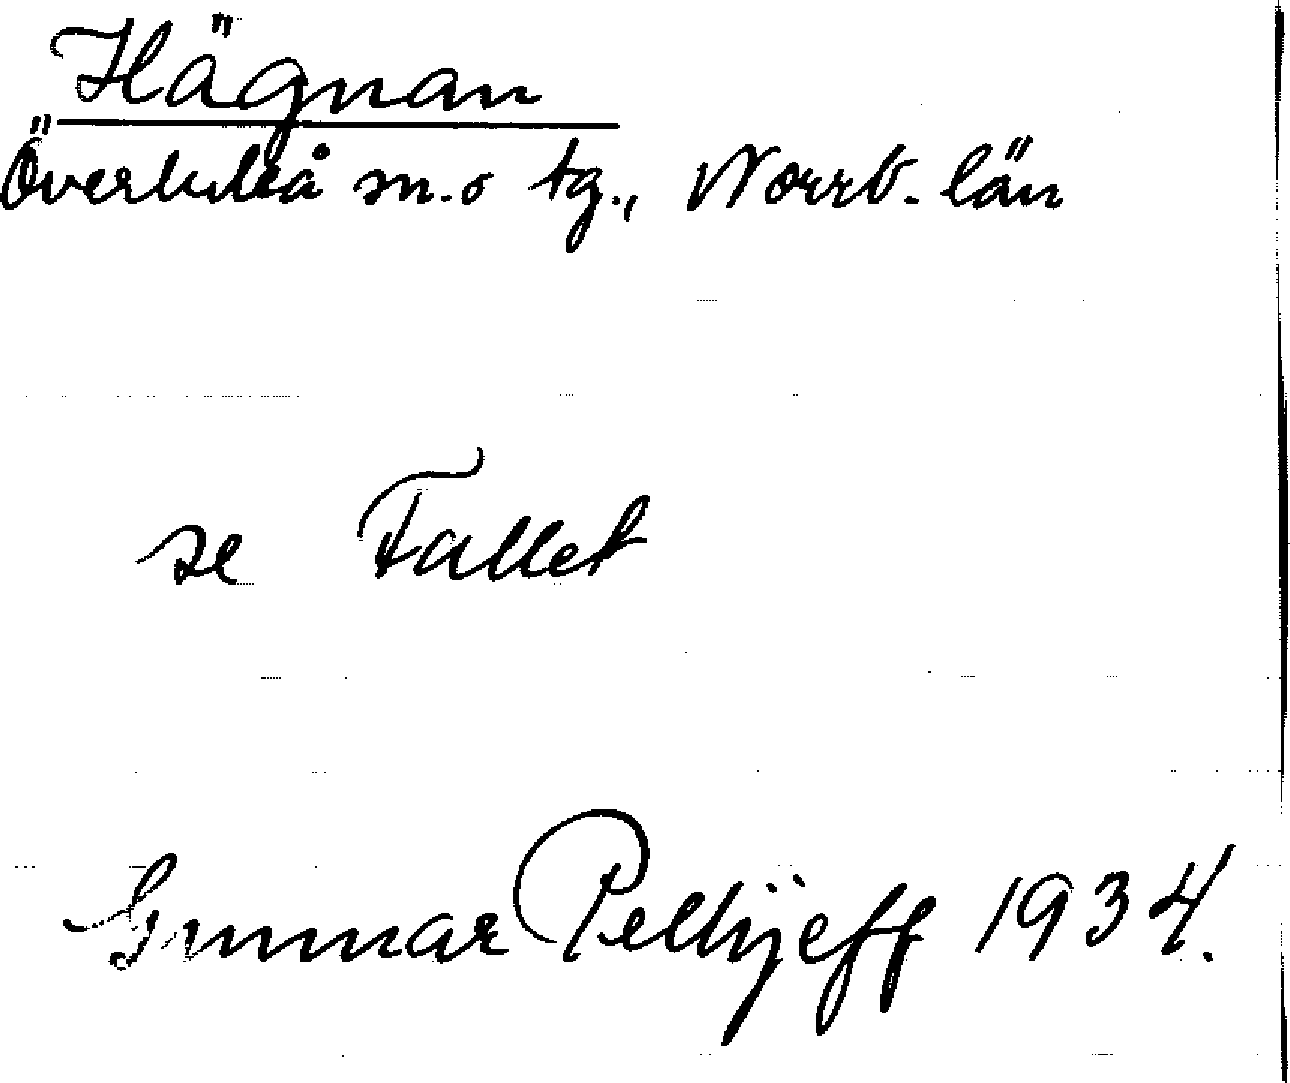 Hägnan
Överluleå sn. o tg., Norrb. län
se Fallet
Gunnar Pellijeff 1934.